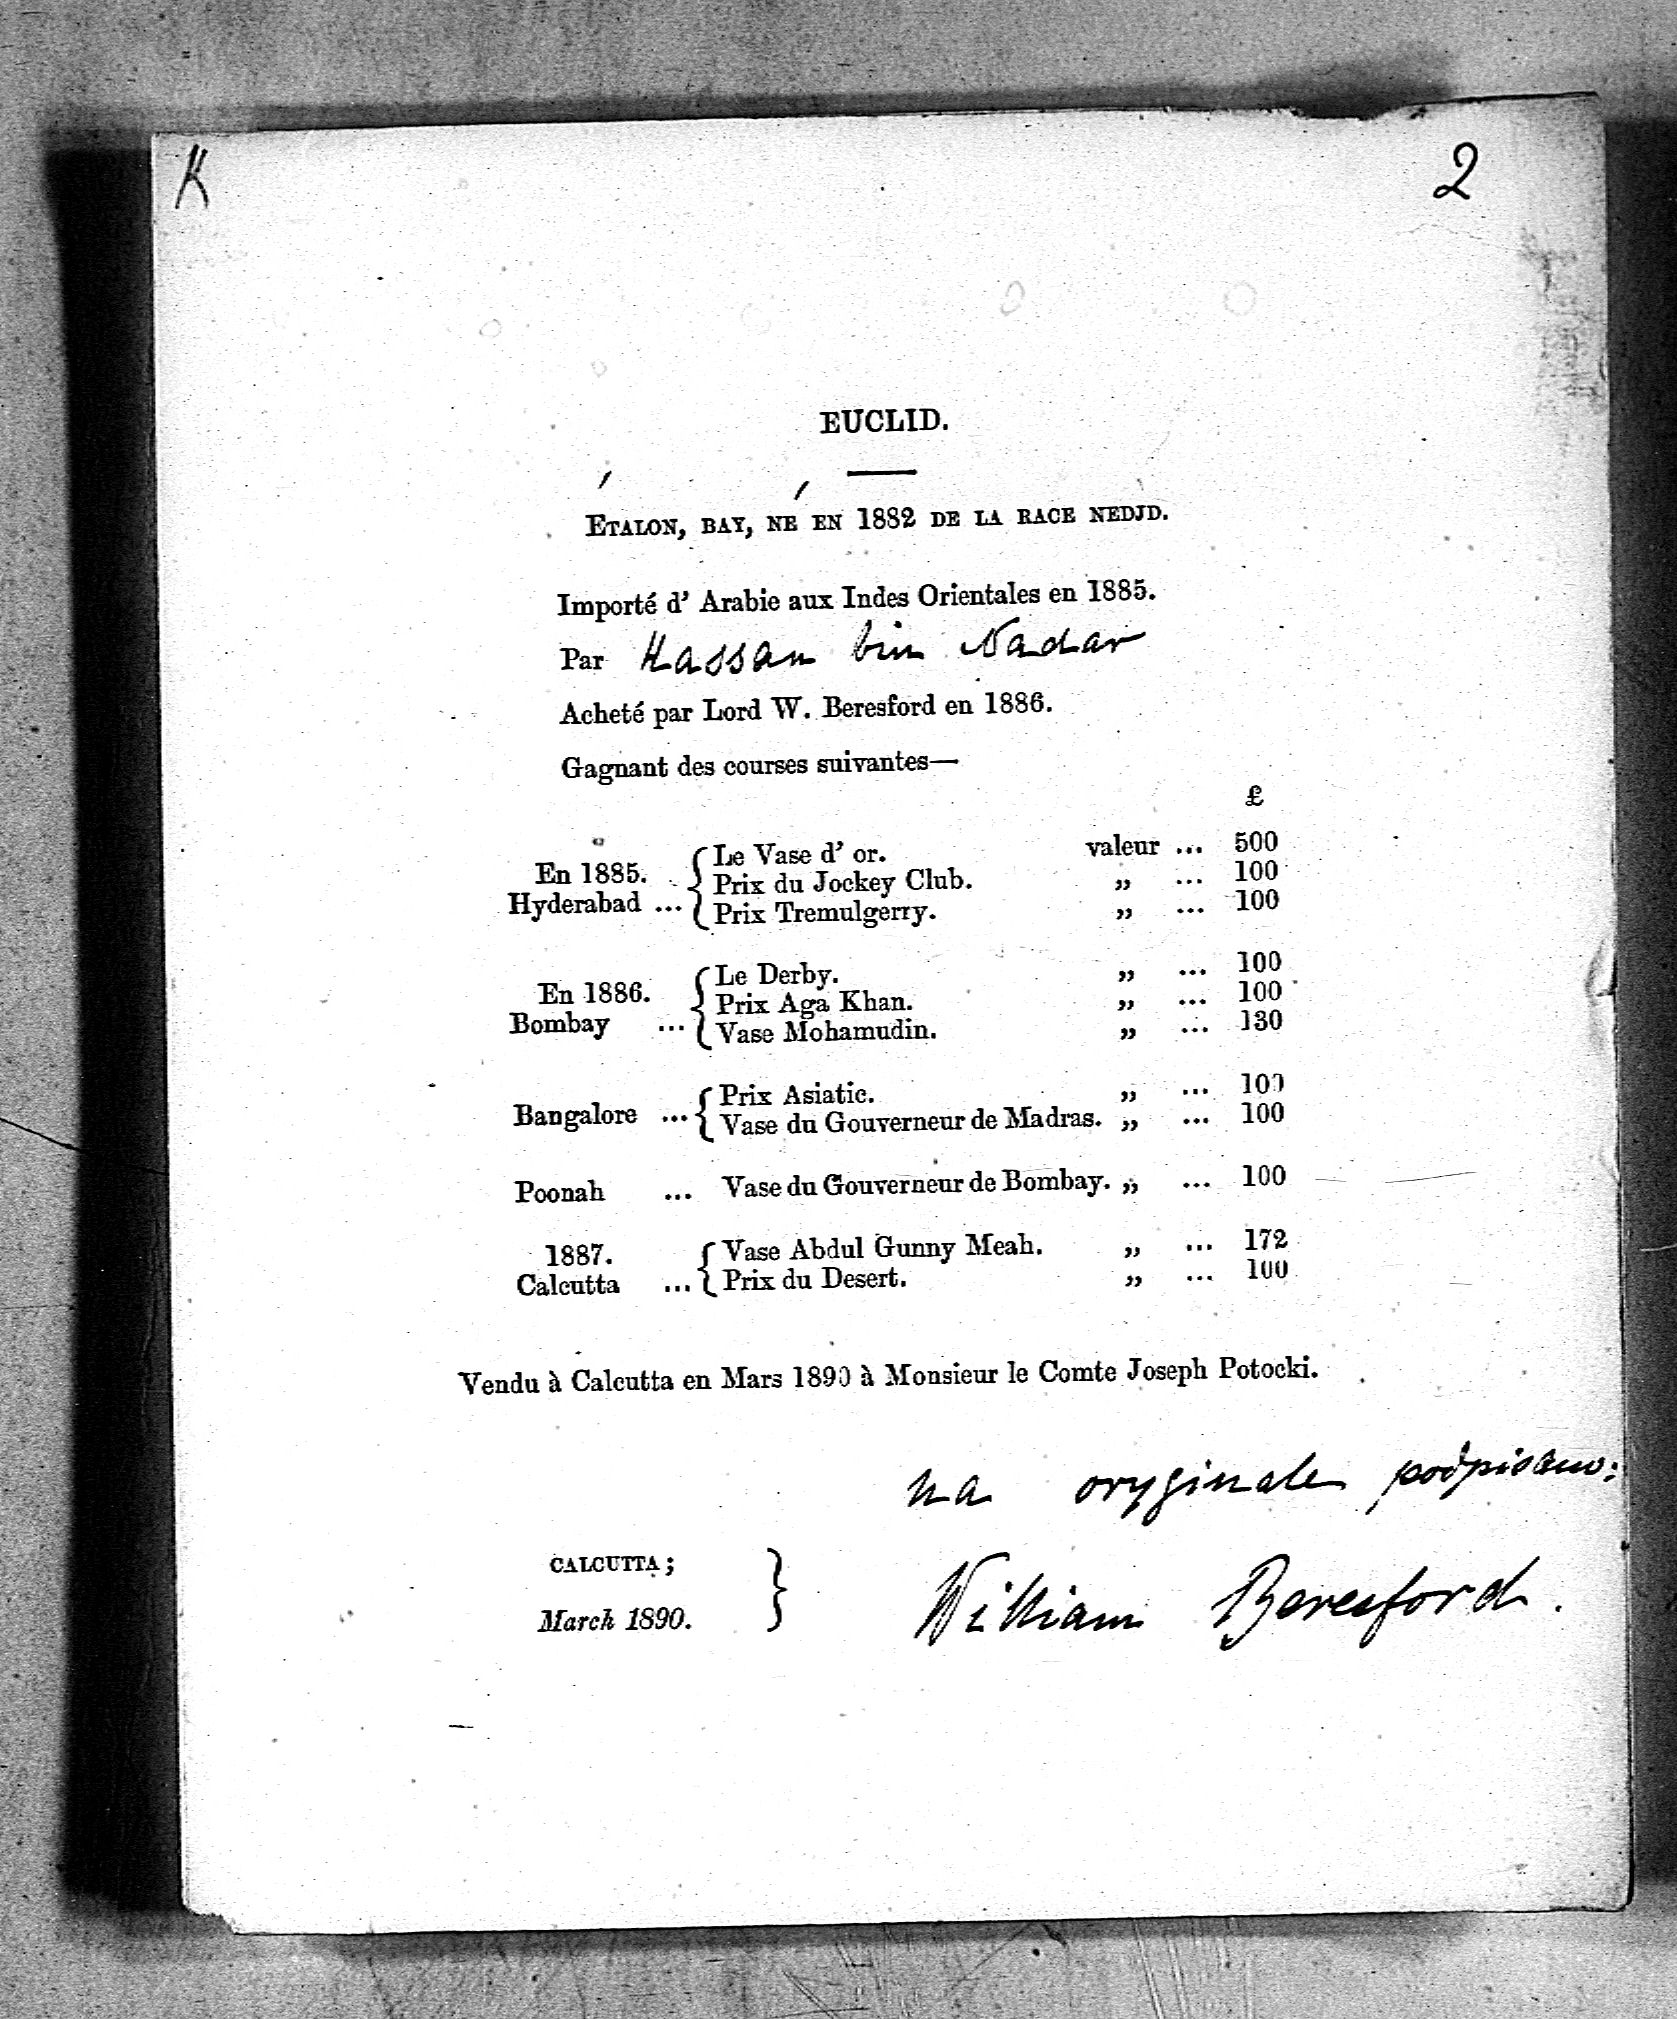 K
2
EUCLID.
ÉTALON, BAY, NÉ EN 1882 DE LA RACE NEDJD.
Importé d' Arabie aux Indes Orientales en 1885.
Par Hassan bin Nadar
Acheté par Lord W. Beresford en 1886.
Gagnant des courses suivantes—
£
En 1885. Hyderabad ... Le Vase d' or. valeur ... 500
Prix du Jockey Club. „ ... 100
Prix Tremulgerry. „ ... 100
En 1886. Bombay ... Le Derby. „ ... 100
Prix Aga Khan. „ ... 100
Vase Mohamudin. „ ... 130
Bangalore ... Prix Asiatic. „ ... 100
Vase du Gouverneur de Madras. „ ... 100
Poonah ... Vase du Gouverneur de Bombay. „ ... 100
1887. Calcutta ... Vase Abdul Gunny Meah. „ ... 172
Prix du Desert. „ ... 100
Vendu à Calcutta en Mars 1890 à Monsieur le Comte Joseph Potocki.
na oryginale podpisano:
CALCUTTA;
March 1890.
William Beresford.